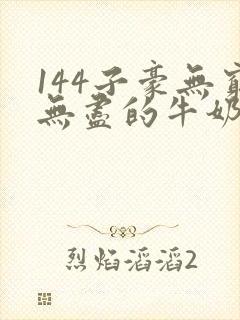 144子豪無窮
無盡的牛奶
烈焰滔滔2